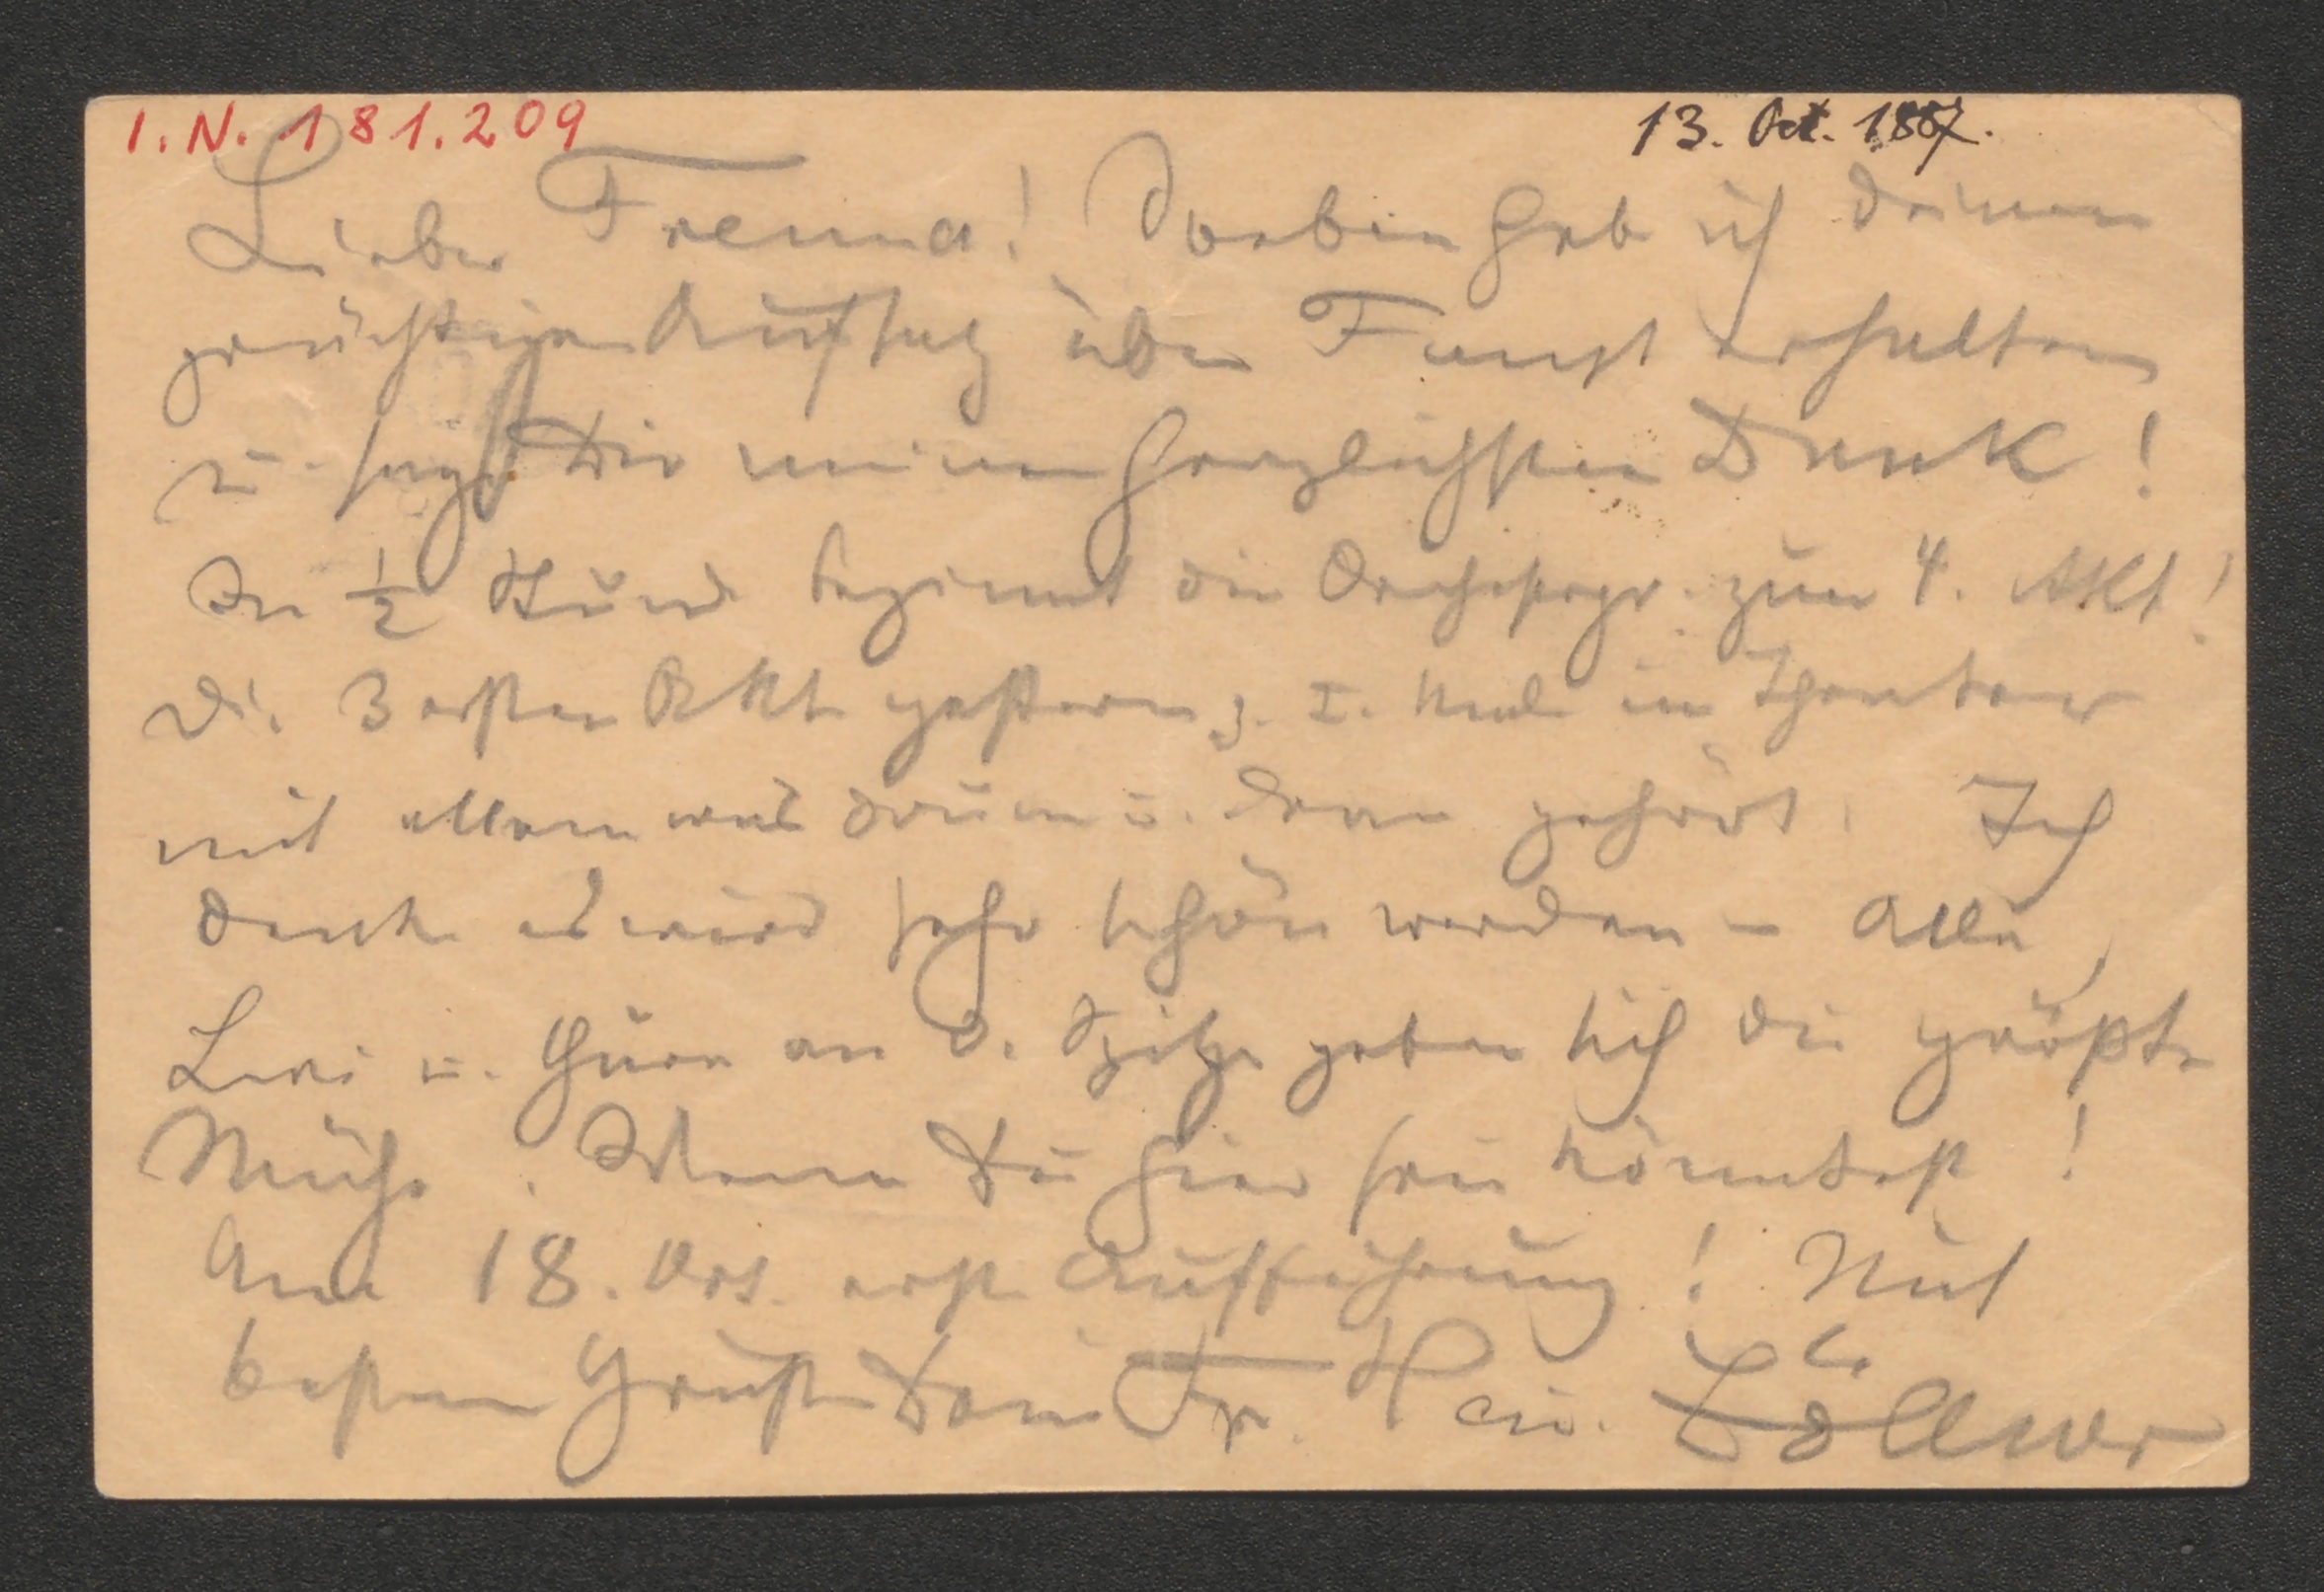 I. N. 181.209
13. Oct. 1887.
Lieber Freund! Soeben hab ich deinen
prächtigen Aufsatz über Faust erhalten
u. sage Dir meinen herzlichsten Dank!
In ½ Stund beginnt die Orchesterpr. zum 4. Akt!
Di. 3 ersten Akte gestern z. I. Male im Theater
mit allem was drum u. dran gehört. Ich
denke es wird sehr schön werden – Alle,
Levi u. Gura an d. Spitze geben sich die größte
Mühe. Wenn Du hier sein könntest!
Am 18. Oct. erste Aufführung! Mit
besten Grüßen Dein Hei. Zöllner